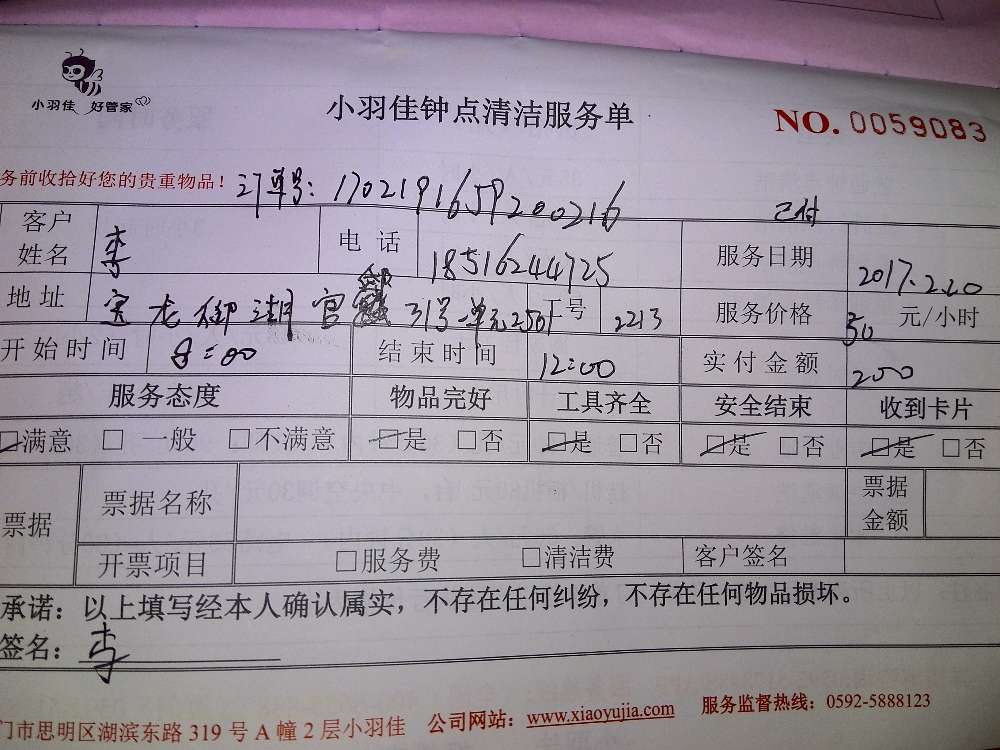 小羽佳 好管家
小羽佳钟点清洁服务单
NO. 0059083
务前收拾好您的贵重物品！ 订单号：1702191659200216 已付
客户姓名 李 电话 18516244725 服务日期 2017.2.20
地址 宝龙御湖官邸 31号一单元2501 工号 2213 服务价格 50 元/小时
开始时间 8:00 结束时间 12:00 实付金额 200
服务态度 物品完好 工具齐全 安全结束 收到卡片
☑满意 □ 一般 □不满意 ☑是 □否 ☑是 □否 ☑是 □否 ☑是 □否
票据 票据名称 票据金额
开票项目 □服务费 □清洁费 客户签名
承诺：以上填写经本人确认属实，不存在任何纠纷，不存在任何物品损坏。
签名：李
门市思明区湖滨东路 319 号 A 幢 2 层小羽佳 公司网站：www.xiaoyujia.com 服务监督热线：0592-5888123